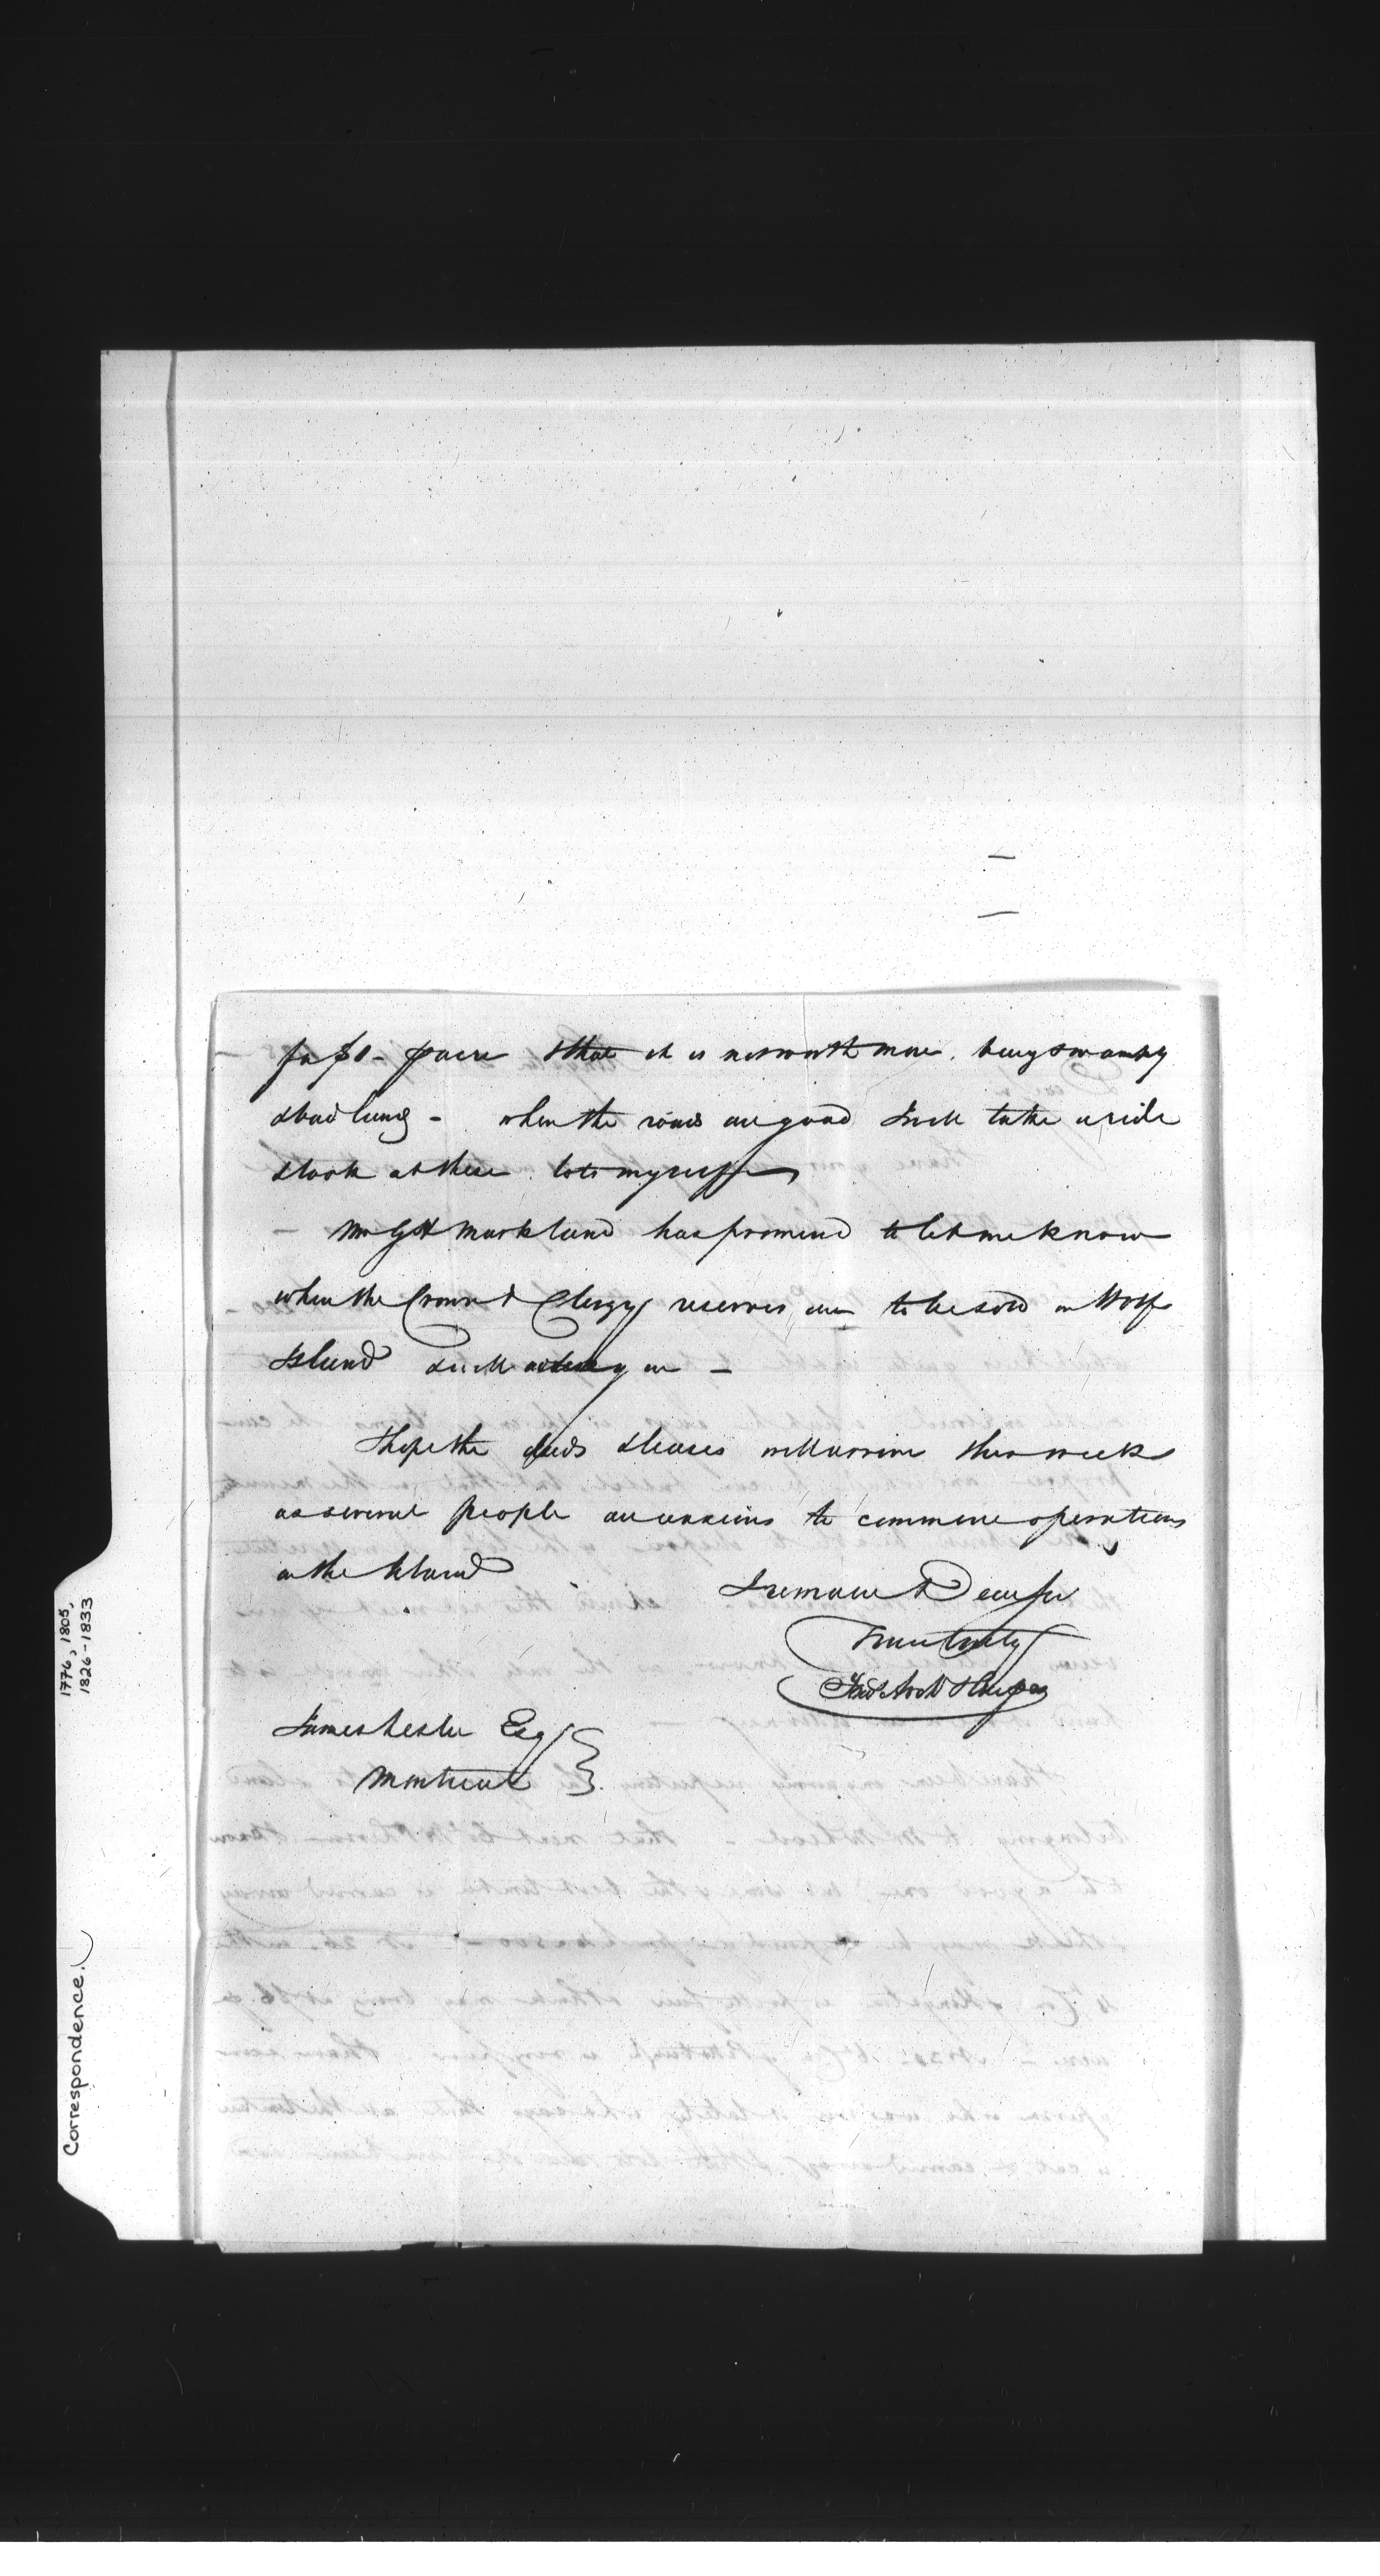 for $1 - p acre & that it is not worth more, being swampy
& bad land - when the roads are good I will take a ride
& look at these lots myself
- Mr G H Markland has promised to let me know
when the Crown & Clergy reserves are to be sold on Wolf
Island &
I hope the deeds & leases will arrive this week
as several people are anxious to commence operations
on the Island
I remain Dear Sir
Yours truly
James Leslie Esq
Montreal
Correspondence.
1776, 1805,
1826-1833